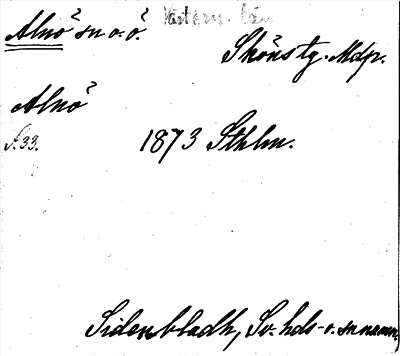 Alnö sn o. ö.
Västern. län
Sköns tg. Mdp.
Alnö
S. 33.
1873 Sthlm.
Sidenbladh, Sv. hds- o. snnamn.